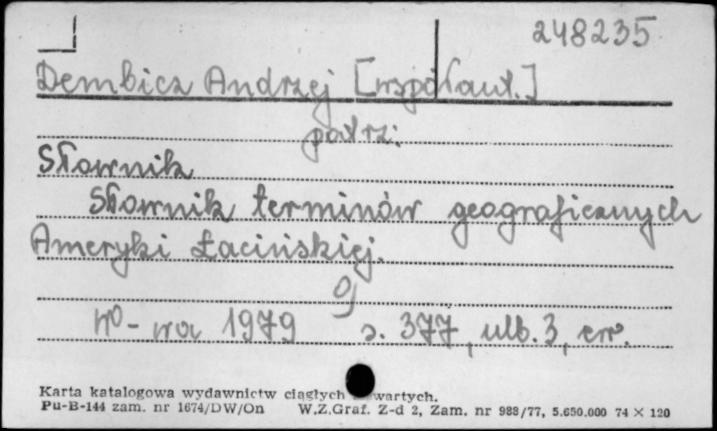 248235
Dembicz Andrzej [współaut.]
patrz:
Słownik
Słownik terminów geograficznych
Ameryki Łacińskiej.
W-wa 1979 s. 377, ulb. 3, err.
Karta katalogowa wydawnictw ciągłych wartych.
Pu-B-144 zam. nr 1674/DW/On W.Z.Graf. Z-d 2, Zam. nr 988/77, 5.650.000 74 × 120